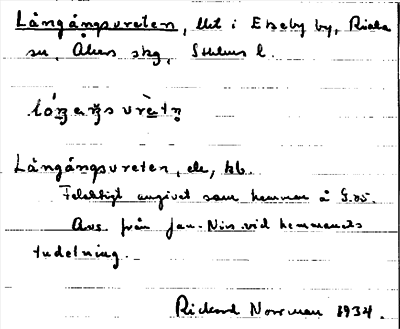 Långångsvreten, lht i Ekeby by, Riala
sn, Åkers skg, Sthlms l.
lóŋaŋsvrètņ
Långångsvreten, de, hb.
Felaktigt angivet som hemman å G.kv.
Avs. från Jan-Nirs vid hemmanets
tudelning.
Rickard Norrman 1934.